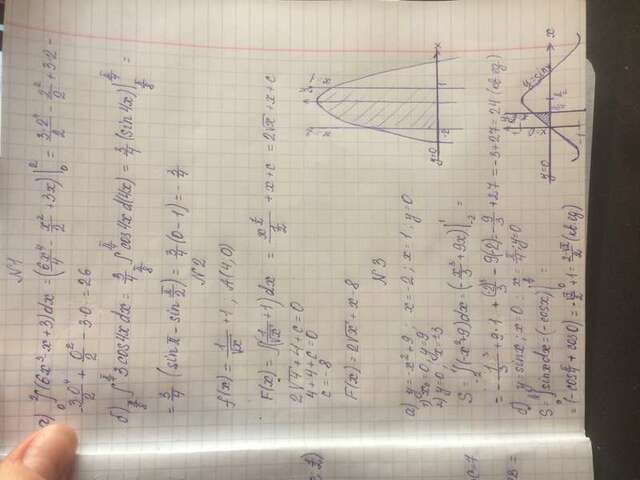 N1
а) ₀∫² (6x³-x+3)dx = (6x⁴/4 - x²/2 + 3x)|₀² = 3·2⁴/2 - 2²/2 + 3·2 -
- 3·0⁴/2 + 0²/2 - 3·0 = 26
б) π/8∫π/4 3cos4xdx = 3/4 π/8∫π/4 cos4x d(4x) = 3/4 (sin4x)|π/8 π/4 =
= 3/4 (sinπ - sin π/2) = 3/4 (0-1) = -3/4
N2
f(x) = 1/√x + 1, A(4,0)
F(x) = ∫(1/√x + 1)dx = x^½/½ + x + c = 2√x + x + c
2√4 + 4 + c = 0
4+4+c=0
c = -8
F(x) = 2√x + x - 8
N3
а) y = -x²+9; x = -2; x = 1; y = 0
1) x=0, y=9
2) y=0, x=±3
S = -2∫1 (-x²+9)dx = (-x³/3 + 9x)|-2 1 =
= -1³/3 + 9·1 + (-2)³/3 - 9(-2) = -9/3 + 27 = -3+27 = 24 (кв.ед)
б) y = sinx; x=0; x = π/4; y=0
S = 0∫π/4 sinxdx = (-cosx)|0 π/4 =
= (-cos π/4 + cos0) = -√2/2 + 1 = 2-√2/2 (кв.ед)
x=-2
x=1
y=0
-2
1
x
y=0
x=0
y=sinx
x
-1
c=7